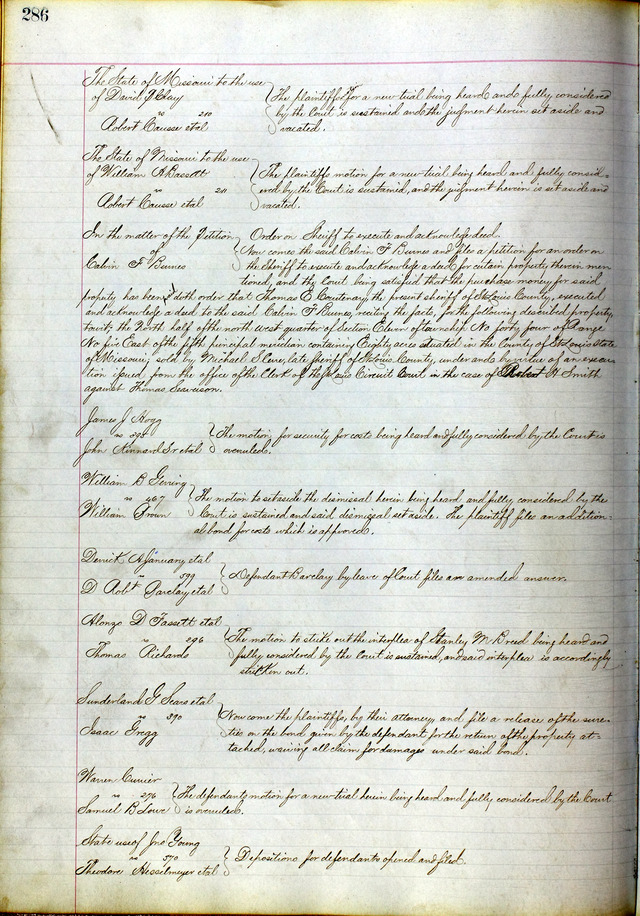 286
The State of Missouri to the use
of David J Clay
vs 210
Robert Causse etal
The plaintiffs for a new trial being heard and fully considered
by the Court is sustained and the judgment herein set aside and
vacated.
The State of Missouri to the use
of William A Bassett
vs 211
Robert Causse etal
The plaintiffs motion for a new trial being heard and fully consid-
ered by the Court is sustained, and the judgment herein is set aside and
vacated.
In the matter of the Petition
of
Calvin F Burnes
Order on Sheriff to execute and acknowledge deed.
Now comes the said Calvin F Burnes and files a petition for an order on
the Sheriff to execute and acknowledge a deed for certain property therein men
tioned, and the Court being satisfied that the purchase money for said
property has been doth order that Thomas E Courtenay the present sheriff of St Louis County, execute
and acknowledge a deed to the said Calvin F Burnes, reciting the facts, for the following described property
towit; the North half of the north west quarter of Section Eleven of township No forty four of Range
No five East of the fifth principal meridian containing Eighty acres situated in the County of St Louis State
of Missouri, sold by Michael S Cerre, late sheriff of St Louis County, under and by virtue of an execu
tion issued from the office of the Clerk of the St Louis Circuit Court in the case of Robert H Smith
against Thomas
James J Hogg
vs
John Kinnard Sr etal
The motion for security for costs being heard and fully considered by the Court is
overruled.
William B
vs 467
William Brown
The motion to set aside the dismissal herein being heard and fully considered by the
Court is sustained and said dismissal set aside. The plaintiff files an addition-
al bond for costs which is approved.
Derrick A January etal
vs 599
D Robt Barclay etal
Defendant Barclay by leave of Court files an amended answer.
Alonzo D Fassett etal
vs 296
Thomas Richards
The motion to strike out the interplea of Stanley M Breed being heard and
fully considered by the Court is sustained, and said interplea is accordingly
stricken out.
Sunderland G Sears etal
vs 390
Isaac Gregg
Now come the plaintiffs, by their attorney, and file a release of the sure-
ties on the bond given by the defendant for the return of the property at-
tached, waiving all claim for damages under said bond.
Warren Currier
vs 276
Samuel B Lowe
The defendants motion for a new trial herein being heard and fully considered by the Court
is overruled.
State use of Jno Young
vs 570
Theodore Hesselmeyer etal
Depositions for defendants opened and filed.